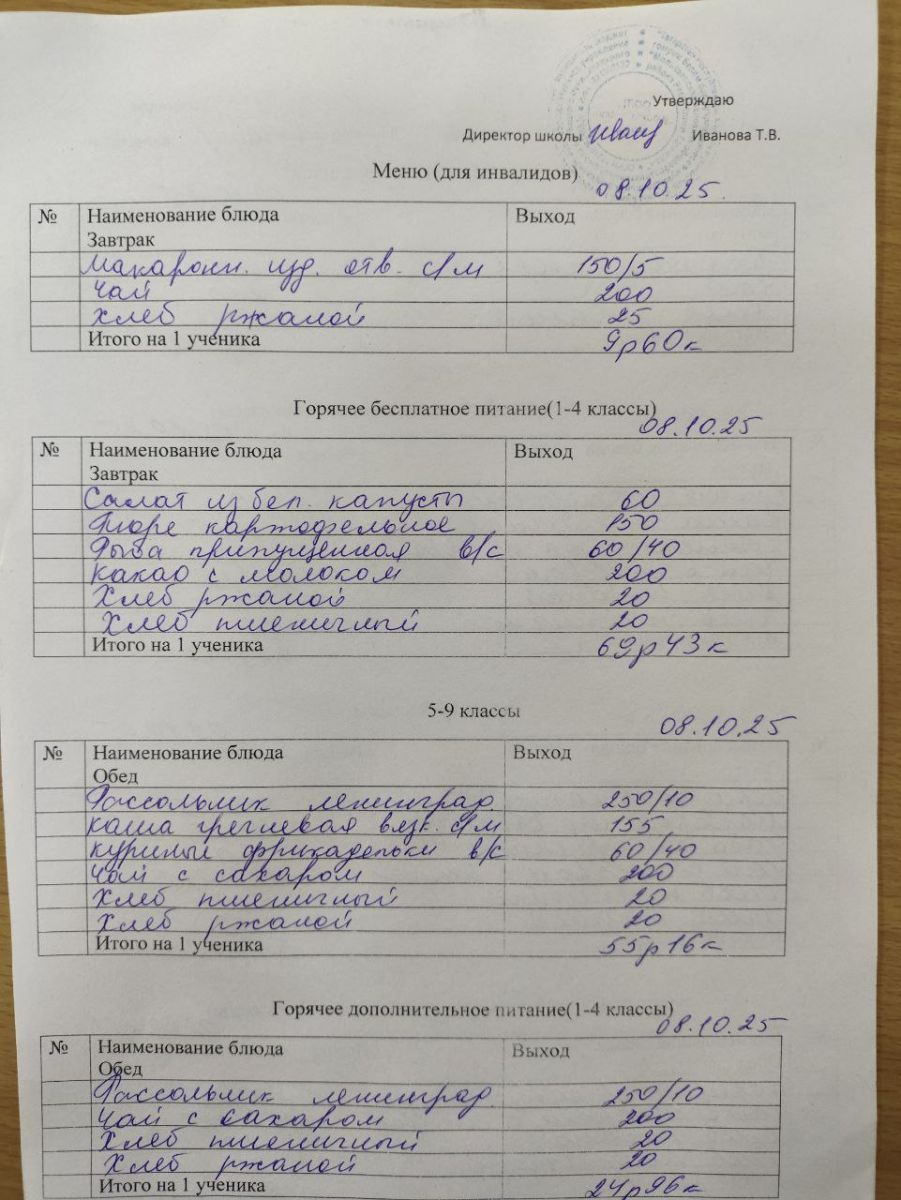 Утверждаю
Директор школы Иванова Т.В.
Меню (для инвалидов)
08.10.25.
№ Наименование блюда Выход
Завтрак
Макаронн. изд. отв. с/м 150/5
Чай 200
Хлеб ржаной 25
Итого на 1 ученика 9р60к
Горячее бесплатное питание(1-4 классы)
08.10.25
№ Наименование блюда Выход
Завтрак
Салат из бел. капусты 60
Пюре картофельное 150
Рыба припущенная в/с 60/40
Какао с молоком 200
Хлеб ржаной 20
Хлеб пшеничный 20
Итого на 1 ученика 69р43к
5-9 классы
08.10.25
№ Наименование блюда Выход
Обед
Рассольник ленинград. 250/10
Каша гречневая вязк. с/м 155
Куриные фрикадельки в/с 60/40
Чай с сахаром 200
Хлеб пшеничный 20
Хлеб ржаной 20
Итого на 1 ученика 55р16к
Горячее дополнительное питание(1-4 классы)
08.10.25
№ Наименование блюда Выход
Обед
Рассольник ленинград 250/10
Чай с сахаром 200
Хлеб пшеничный 20
Хлеб ржаной 20
Итого на 1 ученика 24р96к